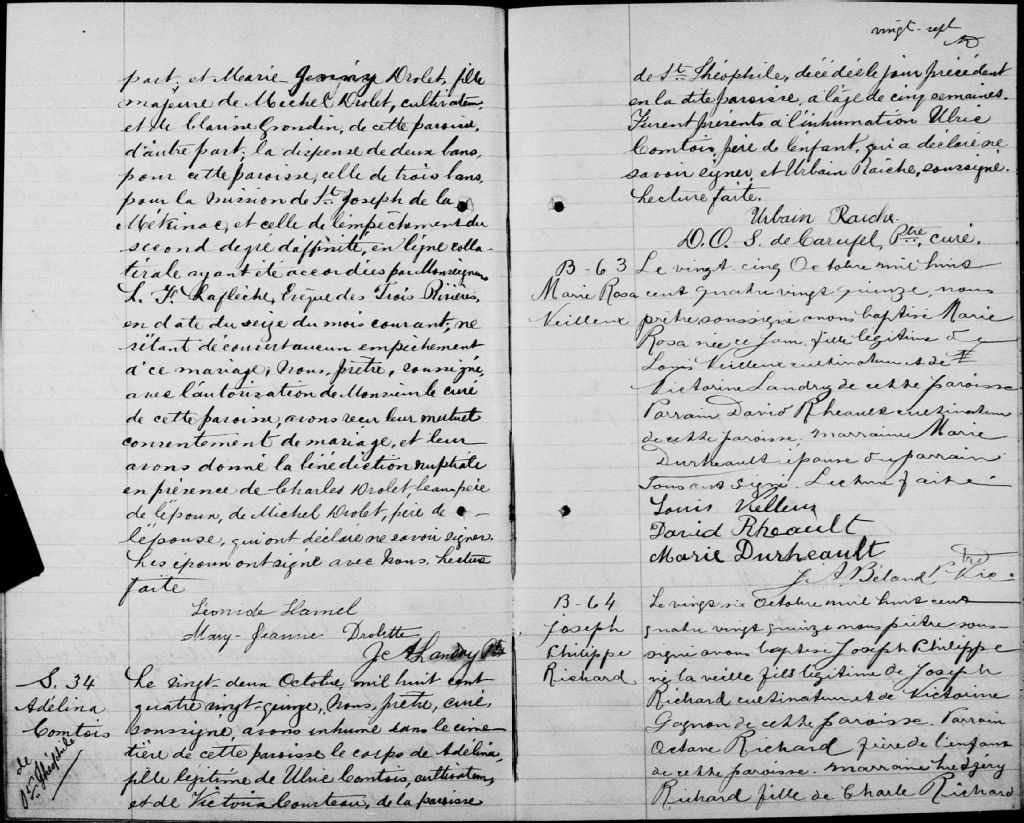 part, et Marie-Jenny Drolet, fille
majeure de Michel Drolet, cultivateur,
et de Clarisse Grondin, de cette paroisse,
d'autre part, la dispense de deux bans,
pour cette paroisse, celle de trois bans,
pour la mission de St. Joseph de la
Mékinac, et celle de l'empêchement du
second degré d'affinité, en ligne colla-
térale ayant été accordées par Monseigneur
L. F. Laflèche, Evêque des Trois Rivières,
en date du seize du mois courant, ne
s'étant découvert aucun empêchement
à ce mariage, Nous, prêtre, soussigné,
avec l'autorisation de Monsieur le curé
de cette paroisse, avons reçu leur mutuel
consentement de mariage, et leur
avons donné la bénédiction nuptiale
en présence de Charles Drolet, beau-père
de l'époux, de Michel Drolet, père de
l'épouse, qui ont déclaré ne savoir signer.
Les époux ont signé avec Nous. Lecture
faite
Léonide Hamel
Mary-Jeanne Drolette
Je A Landry Ptre
S. 34
Adélina
Comtois
de
St. Théophile
Le vingt-deux Octobre, mil huit cent
quatre vingt-quinze, Nous, prêtre, curé,
soussigné, avons inhumé dans le cime-
tière de cette paroisse le corps de Adélina,
fille légitime de Ulric Comtois, cultivateur,
et de Victoria Courteau, de la paroisse
vingt-sept
de St. Théophile, décédée le jour précédent
en la dite paroisse, à l'âge de cinq semaines.
Furent présents à l'inhumation Ulric
Comtois, père de l'enfant, qui a déclaré ne
savoir signer, et Urbain Raiche, soussigné.
Lecture faite.
Urbain Raiche.
D. O. S. de Carufel, Ptre, curé.
B-63
Marie Rosa
Veilleux
Le vingt-cinq Octobre mil huit
cent quatre vingt quinze, nous
prêtre soussigné avons baptisé Marie
Rosa née ce jour, fille légitime de
Louis Veilleux cultivateur et de
Victorine Landry de cette paroisse
Parrain David Rheault cultivateur
de cette paroisse. marraine Marie
Durheault épouse du parrain
Tous ont signé. Lecture faite
Louis Velleux
David Rheault
Marie Durheault
J. A Béland Ptre Vic.
B-64
Joseph
Philippe
Richard
Le vingt six Octobre mil huit cent
quatre vingt quinze nous prêtre sous-
signé avons baptisé Joseph Philippe
né la veille fils légitime de Joseph
Richard cultivateur et de Victorine
Gagnon de cette paroisse. Parrain
Octave Richard frère de l'enfant
de cette paroisse. marraine
Richard fille de Charle Richard